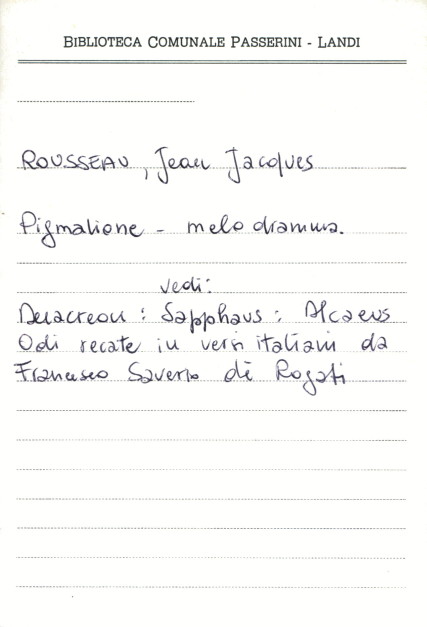 BIBLIOTECA COMUNALE PASSERINI - LANDI
ROUSSEAU, Jean Jacques
Pigmalione - melodramma.
vedi:
Anacreon : Sapphaus : Alcaeus
Odi recate in versi italiani da
Francesco Saverio de Rogati